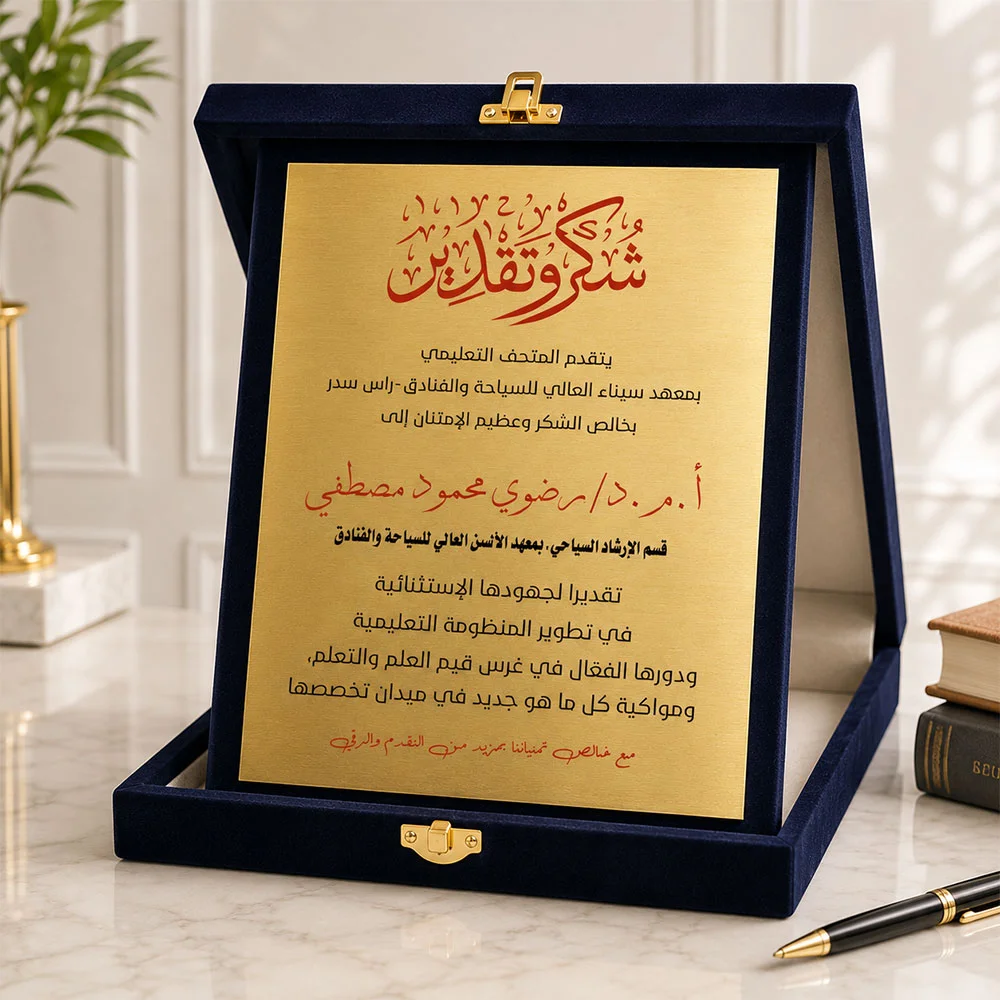 شُكر وَتَقدِير
يتقدم المتحف التعليمي
بمعهد سيناء العالي للسياحة والفنادق -راس سدر
بخالص الشكر وعظيم الإمتنان إلى
أ.م.د/رضوي محمود مصطفي
قسم الإرشاد السياحي، بمعهد الألسن العالي للسياحة والفنادق
تقديرا لجهودها الإستثنائية
في تطوير المنظومة التعليمية
ودورها الفعّال في غرس قيم العلم والتعلم،
ومواكبة كل ما هو جديد في ميدان تخصصها
مع خالص تمنياتنا بمزيد من التقدم والرقي